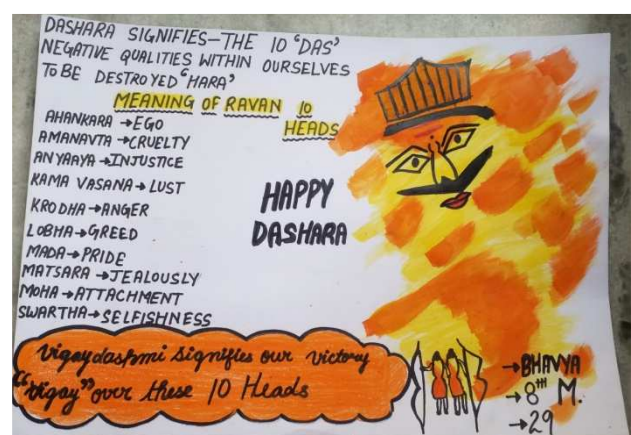 DASHARA SIGNIFIES-THE 10 "DAS"
NEGATIVE QUALITIES WITHIN OURSELVES
TO BE DESTROYED "HARA"
MEANING OF RAVAN 10
HEADS
AHANKARA→EGO
AMANAVTA→CRUELTY
ANYAAYA→INJUSTICE
KAMA VASANA→LUST
KRODHA→ANGER
LOBHA→GREED
MADA→PRIDE
MATSARA→JEALOUSLY
MOHA→ATTACHMENT
SWARTHA→SELFISHNESS
HAPPY
DASHARA
Vigaydashmi signifies our victory
"vigay" over these 10 Heads
→BHAVYA
→8TH M.
→29